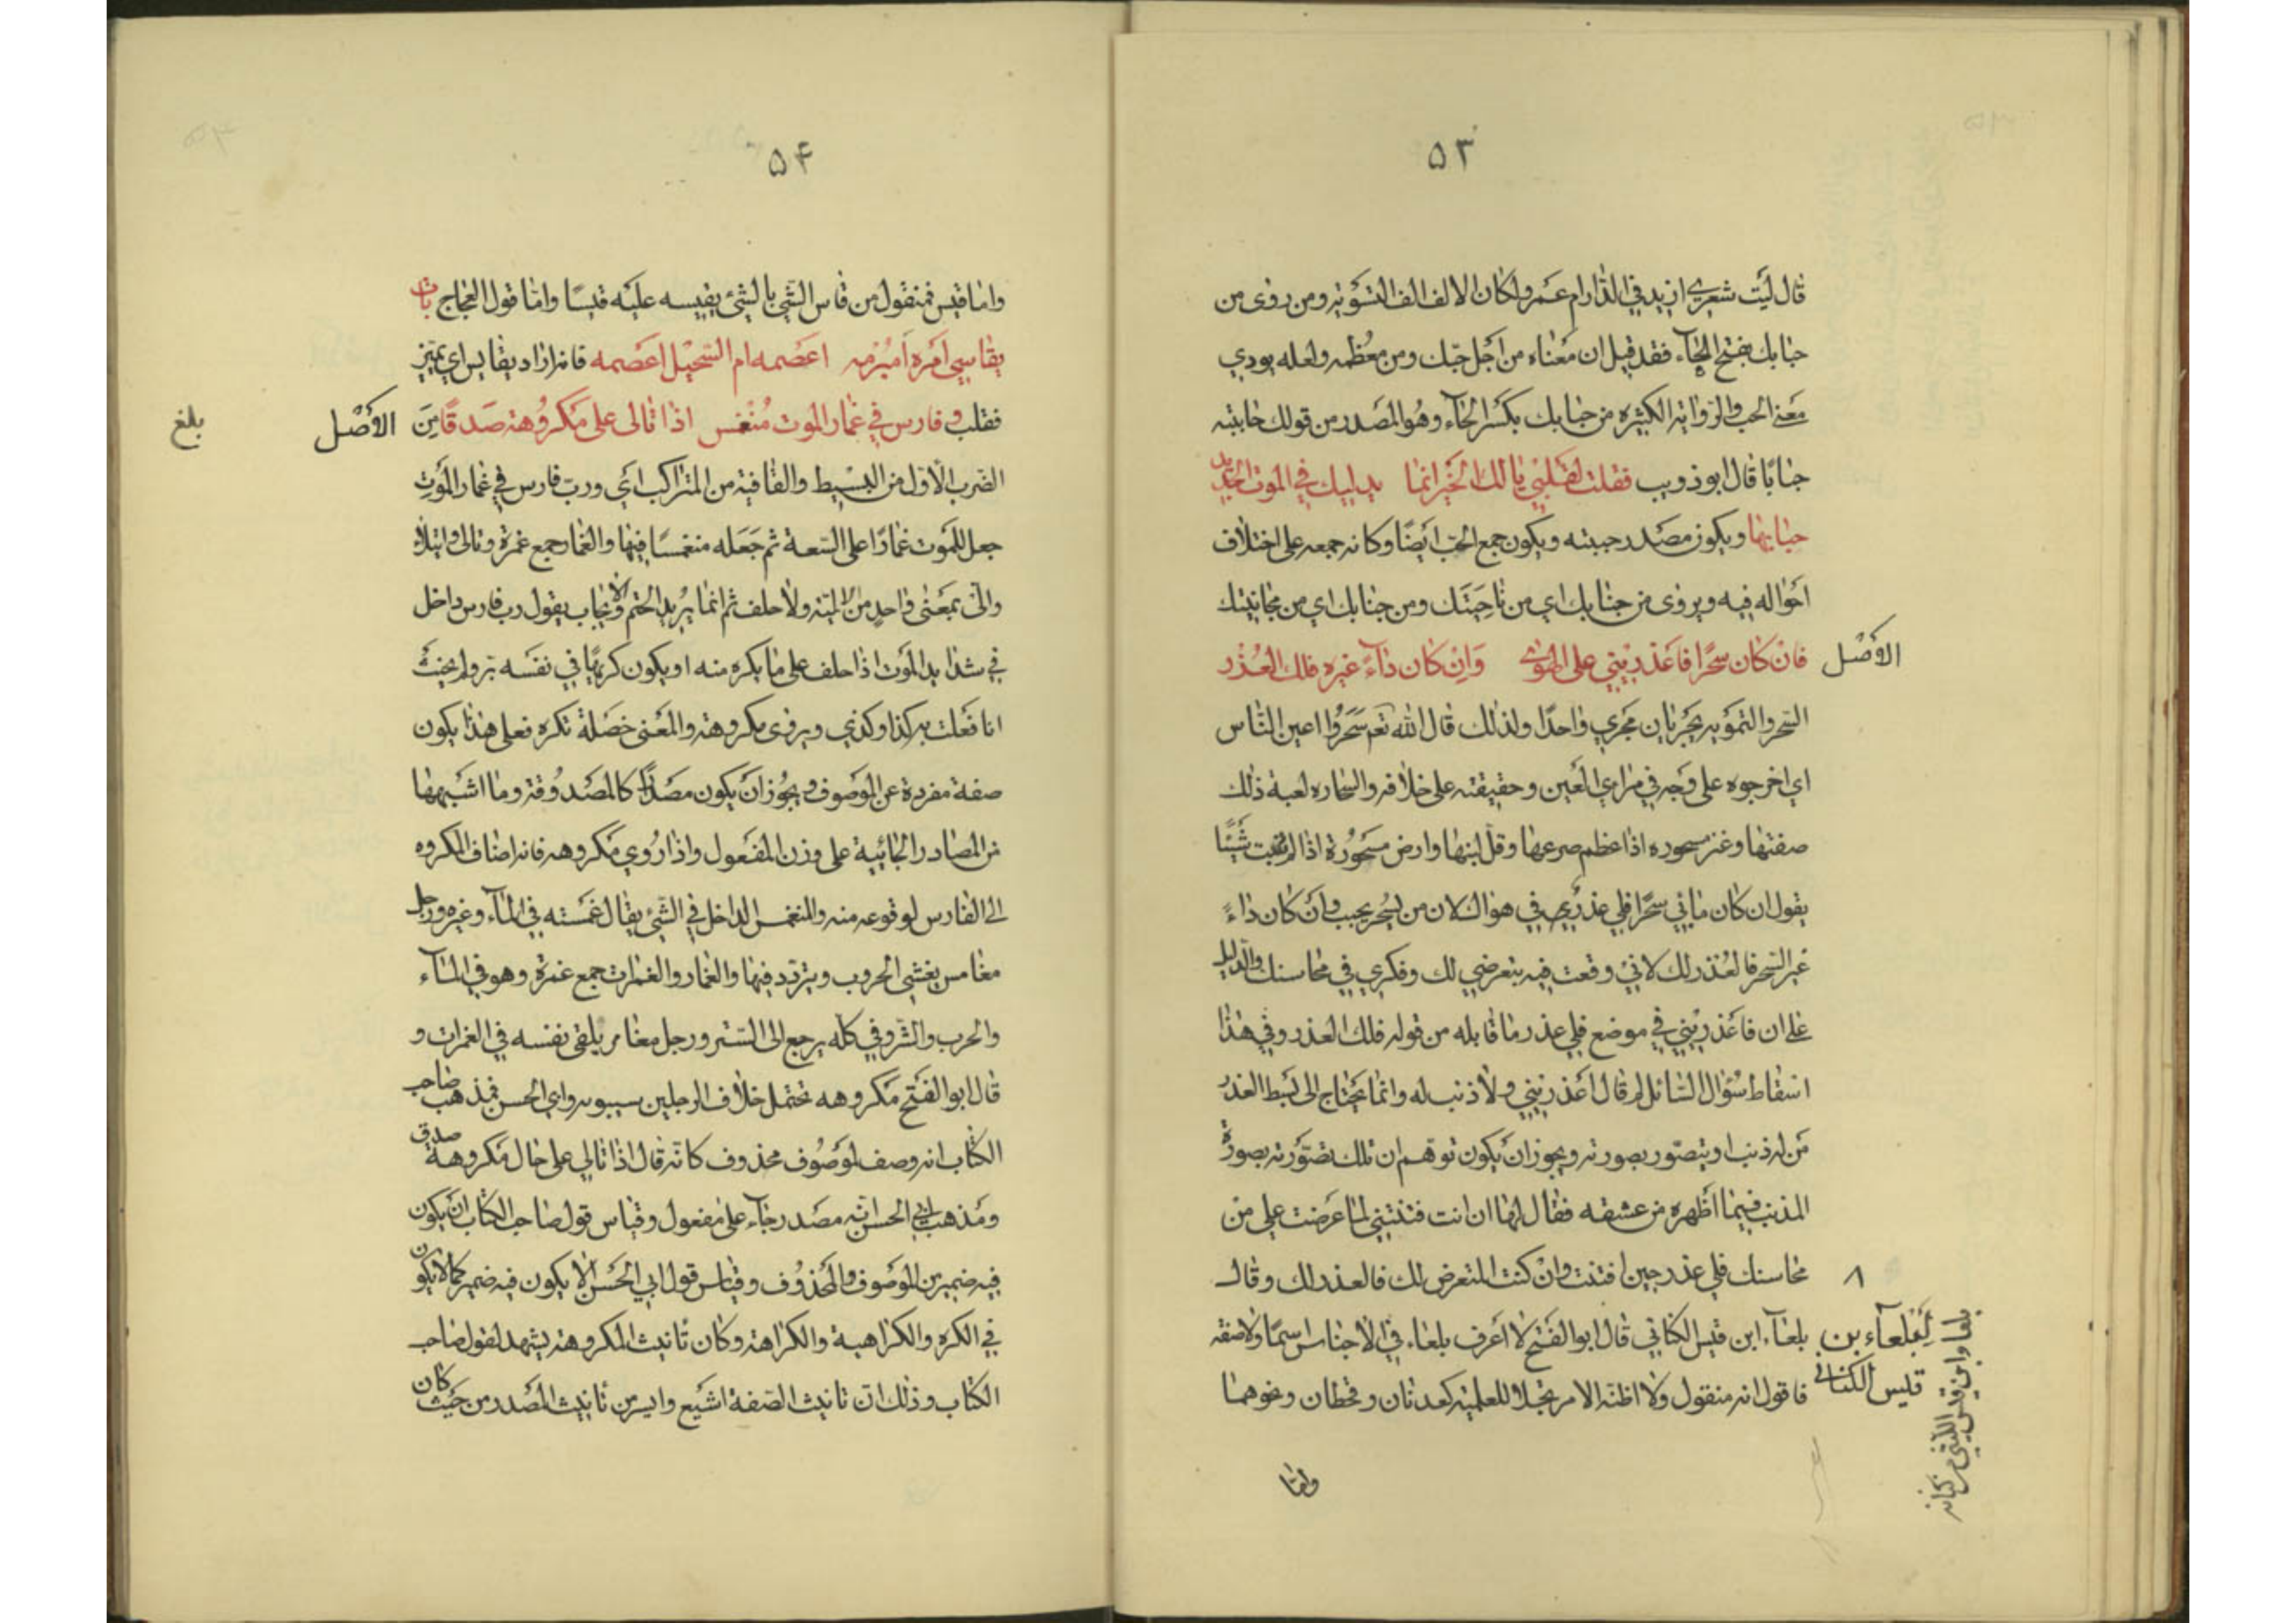 ٥٣
قال ليت شعري ازيد في الدار ام عمرو لكان الالف الف التسوية ومن روى من
حبابك بفتح الحآء فقد قيل ان معناه من اجل حبك ومن معظمه ولعله يودي
معنى الحب والرواية الكثيره من حبابك بكسر الحآء وهو المصدر من قولك حاببته
حبابا قال ابو ذويب فقلت لقلبي يا لك الخير انما يدليك في الموت الجديد
حبابها ويكون مصدر حببته ويكون جمع الحب ايضا وكانه جمعه على اختلاف
احواله فيه ويروى من جنابك اي من ناحيتك ومن جنابك اي من مجانبتك
الاصل
فان كان سحرا فاعذريني على الهوى وان كان داء غيره فلك العذر
السحر والتمويه يجريان مجرى واحدا ولذلك قال الله تع سحروا اعين الناس
اي اخرجوه على وجه في مراي العين وحقيقته على خلافه والسحاره لعبة ذلك
صفتها وعنز مسحوره اذا عظم ضرعها وقل لبنها وارض مسحورة اذا لم تنبت شيئا
يقول ان كان مابي سحرا فلي عذر في هواك لان من يسحر يحب وان كان داء
غير السحر فالعذر لك لاني وقعت فيه بتعرضي لك وفكري في محاسنك والدليل
على ان فاعذريني في موضع فلي عذر ما قابله من قوله فلك العذر وفي هذا
اسقاط سؤال السائل لم قال اعذريني ولا ذنب له وانما يحتاج الى بسط العذر
من له ذنب او يتصور بصورته ويجوز ان يكون توهم ان تلك تصورته بصورة
المذنب فيما اظهره من عشقه فقال لها ان انت فتنتني لما عرضت علي من
محاسنك فلي عذر حين افتنت وان كنت المتعرض لك فالعذر لك وقال
٨
بلعآء ابن قيس الكناني قال ابو الفتح لا اعرف بلعاء في الاجناس اسما ولا صفة
لبلعآء بن
قيس الكناني
فاقول انه منقول ولا اظنه الا مرتجلا للعلمية كعدنان وقحطان ونحوهما
بلعا وابن قيس الليثي من كنانه
واما
٥٤
واما قيس فمنقول من قاس الشي بالشئ يقيسه عليه قيسا واما قول العجاج بات
يقاسي امره امبرمه اعصمه ام السحيل اعصمه فانه اراد يقايس اي يميز
فقلب وفارس في غمار الموت منغمس اذا تالى على مكروهة صدقا من
الاصل
بلغ
الضرب الاول من البسيط والقافية من المتراكب اي ورب فارس في غمار الموت
جعل للموت غمارا على السعة ثم جعله منغمسا فيها والغمار جمع غمرة وتالى وايتلا
والى بمعنى واحد من الالية ولا حلف ثم انما يريد الحتم والايجاب يقول رب فارس داخل
في شدايد الموت اذا حلف على ما يكره منه او يكون كريها في نفسه بر ولم يحنث
انا فعلت به كذا وكذى ويروى مكروهة والمعنى خصلة تكره فعلى هذا يكون
صفة مفردة عن الموصوف ويجوز ان يكون مصدرا كالمصدوقة وما اشبهها
من المصادر الجائية على وزن المفعول واذا روي مكروهه فانه اضاف المكروه
الى الفارس لوقوعه منه والمنغمس الداخل في الشئ يقال غمسته في المآء وغيره ورجل
مغامس يغشى الحروب ويتردد فيها والغمار والغمرات جمع غمرة وهو في المآء
والحرب والشر وفي كله يرجع الى الستر ورجل مغامر يلقى نفسه في الغمرات و
قال ابو الفتح مكروهه تحتمل خلاف الرجلين سيبويه وابي الحسن فمذهب صاحب
الكتاب انه وصف لموصوف محذوف كانه قال اذا تالي على حال مكروهة صدق
ومذهب ابي الحسن انه مصدر جاء على مفعول وقياس قول صاحب الكتاب ان يكون
فيه ضمير من الموصوف والمحذوف وقياس قول ابي الحسن الا يكون فيه ضمير كما لا يكون
في الكره والكراهية والكراهة وكان تانيث المكروهة يشهد لقول صاحب
الكتاب وذلك ان تانيث الصفة اشيع وايسر من تانيث المصدر من حيث كان